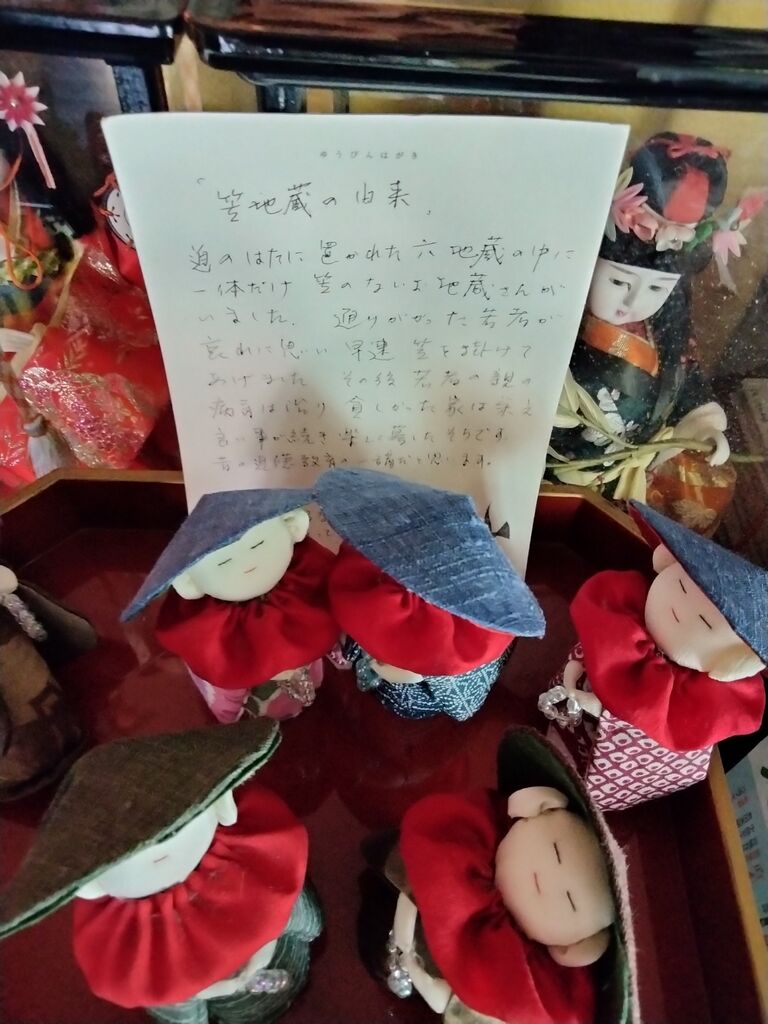 ゆうびんはがき
「笠地蔵の由来」
道のはたに置かれた六地蔵の中に
一体だけ笠のないお地蔵さんが
いました。通りがかった若者が
哀れに思い早速笠を掛けて
あげました その後若者の親の
病気は治り貧しかった家は栄え
良い事が続き楽しく暮したそうです。
昔の道徳教育の一端だと思います。